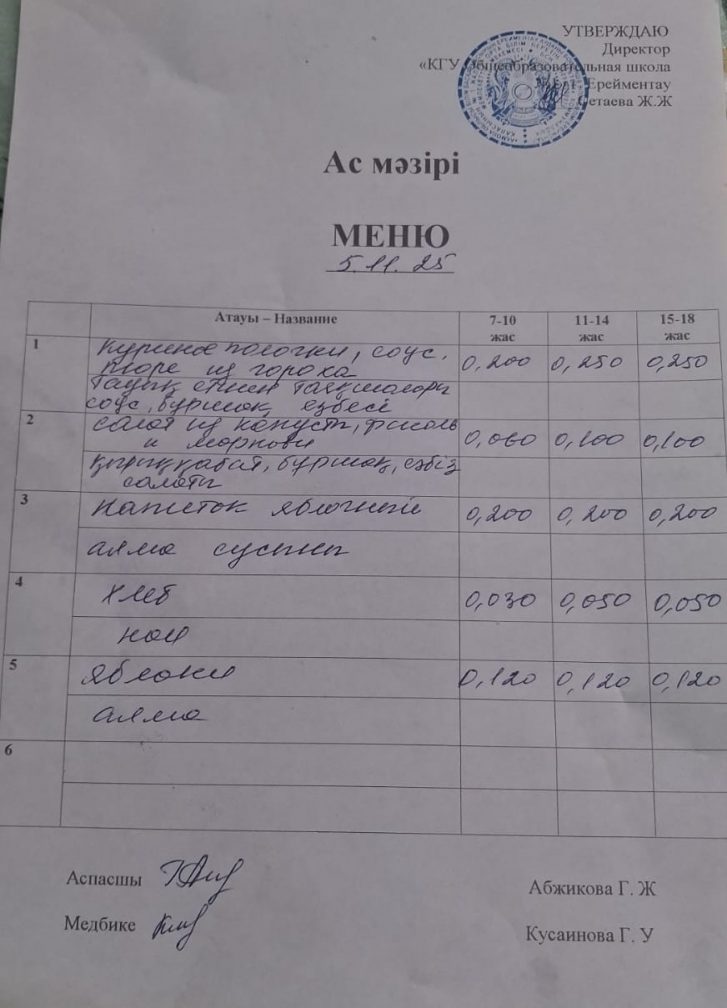 УТВЕРЖДАЮ
Директор
«КГУ Общеобразовательная школа
Ерейментау
Сетаева Ж.Ж
Ас мәзірі
МЕНЮ
5.11.25
Атауы – Название 7-10 жас 11-14 жас 15-18 жас
1 Куриное палочки, соус, 0,200 0,250 0,250
пюре из гороха
Тауық етінен таяқшалары
соус, бұршақ езбесі
2 салат из капусты, фасоль 0,060 0,100 0,100
и моркови
қырыққабат, бұршақ, сәбіз
салаты
3 Напиток яблочный 0,200 0,200 0,200
алма сусыны
4 хлеб 0,030 0,050 0,050
нан
5 яблоки 0,120 0,120 0,120
алма
6
Аспасшы Абжикова Г. Ж
Медбике Кусаинова Г. У